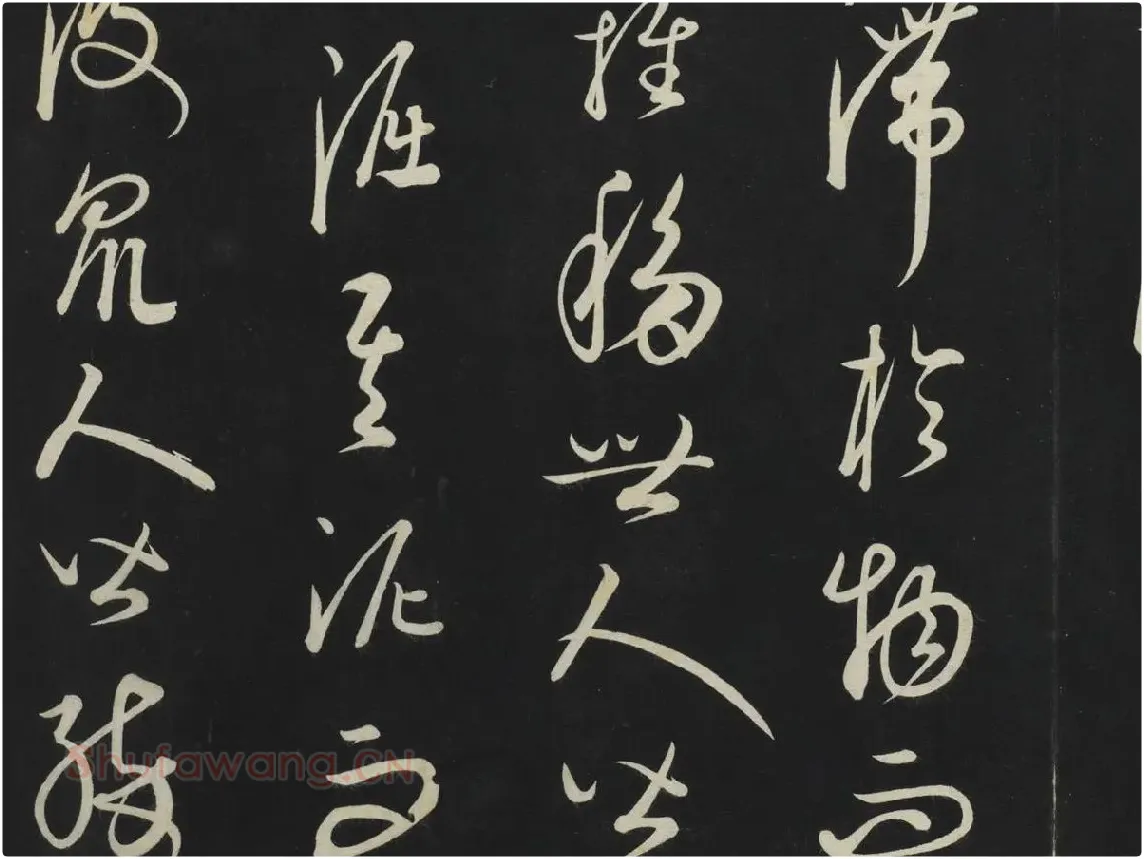 滯於物而
推移世人皆
淈其泥而
波衆人皆醉
Shufawang.CN